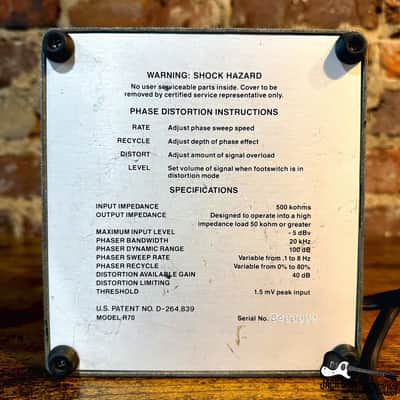 WARNING: SHOCK HAZARD
No user serviceable parts inside. Cover to be
removed by certified service representative only.
PHASE DISTORTION INSTRUCTIONS
RATE Adjust phase sweep speed
RECYCLE Adjust depth of phase effect
DISTORT Adjust amount of signal overload
LEVEL Set volume of signal when footswitch is in
distortion mode
SPECIFICATIONS
INPUT IMPEDANCE 500 kohms
OUTPUT IMPEDANCE Designed to operate into a high
impedance load 50 kohm or greater
MAXIMUM INPUT LEVEL - 5 dBv
PHASER BANDWIDTH 20 kHz
PHASER DYNAMIC RANGE 100 dB
PHASER SWEEP RATE Variable from .1 to 8 Hz
PHASER RECYCLE Variable from 0% to 80%
DISTORTION AVAILABLE GAIN 40 dB
DISTORTION LIMITING
THRESHOLD 1.5 mV peak input
U.S. PATENT NO. D-264,839
MODEL-R70 Serial No.